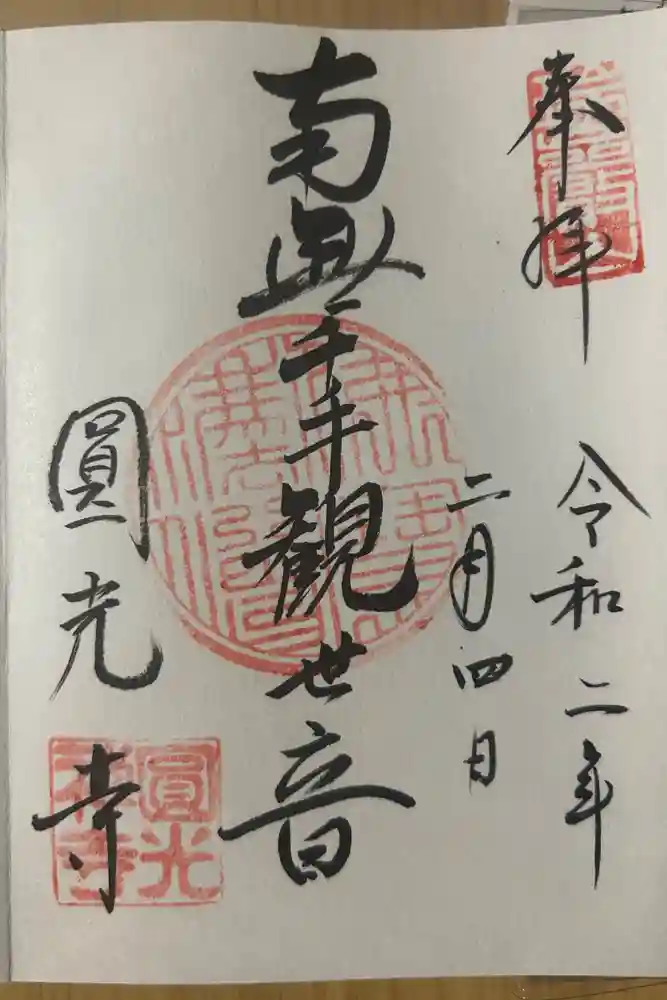 奉拝
令和二年
二月四日
南無千手観世音
圓光寺
圓光
禅寺